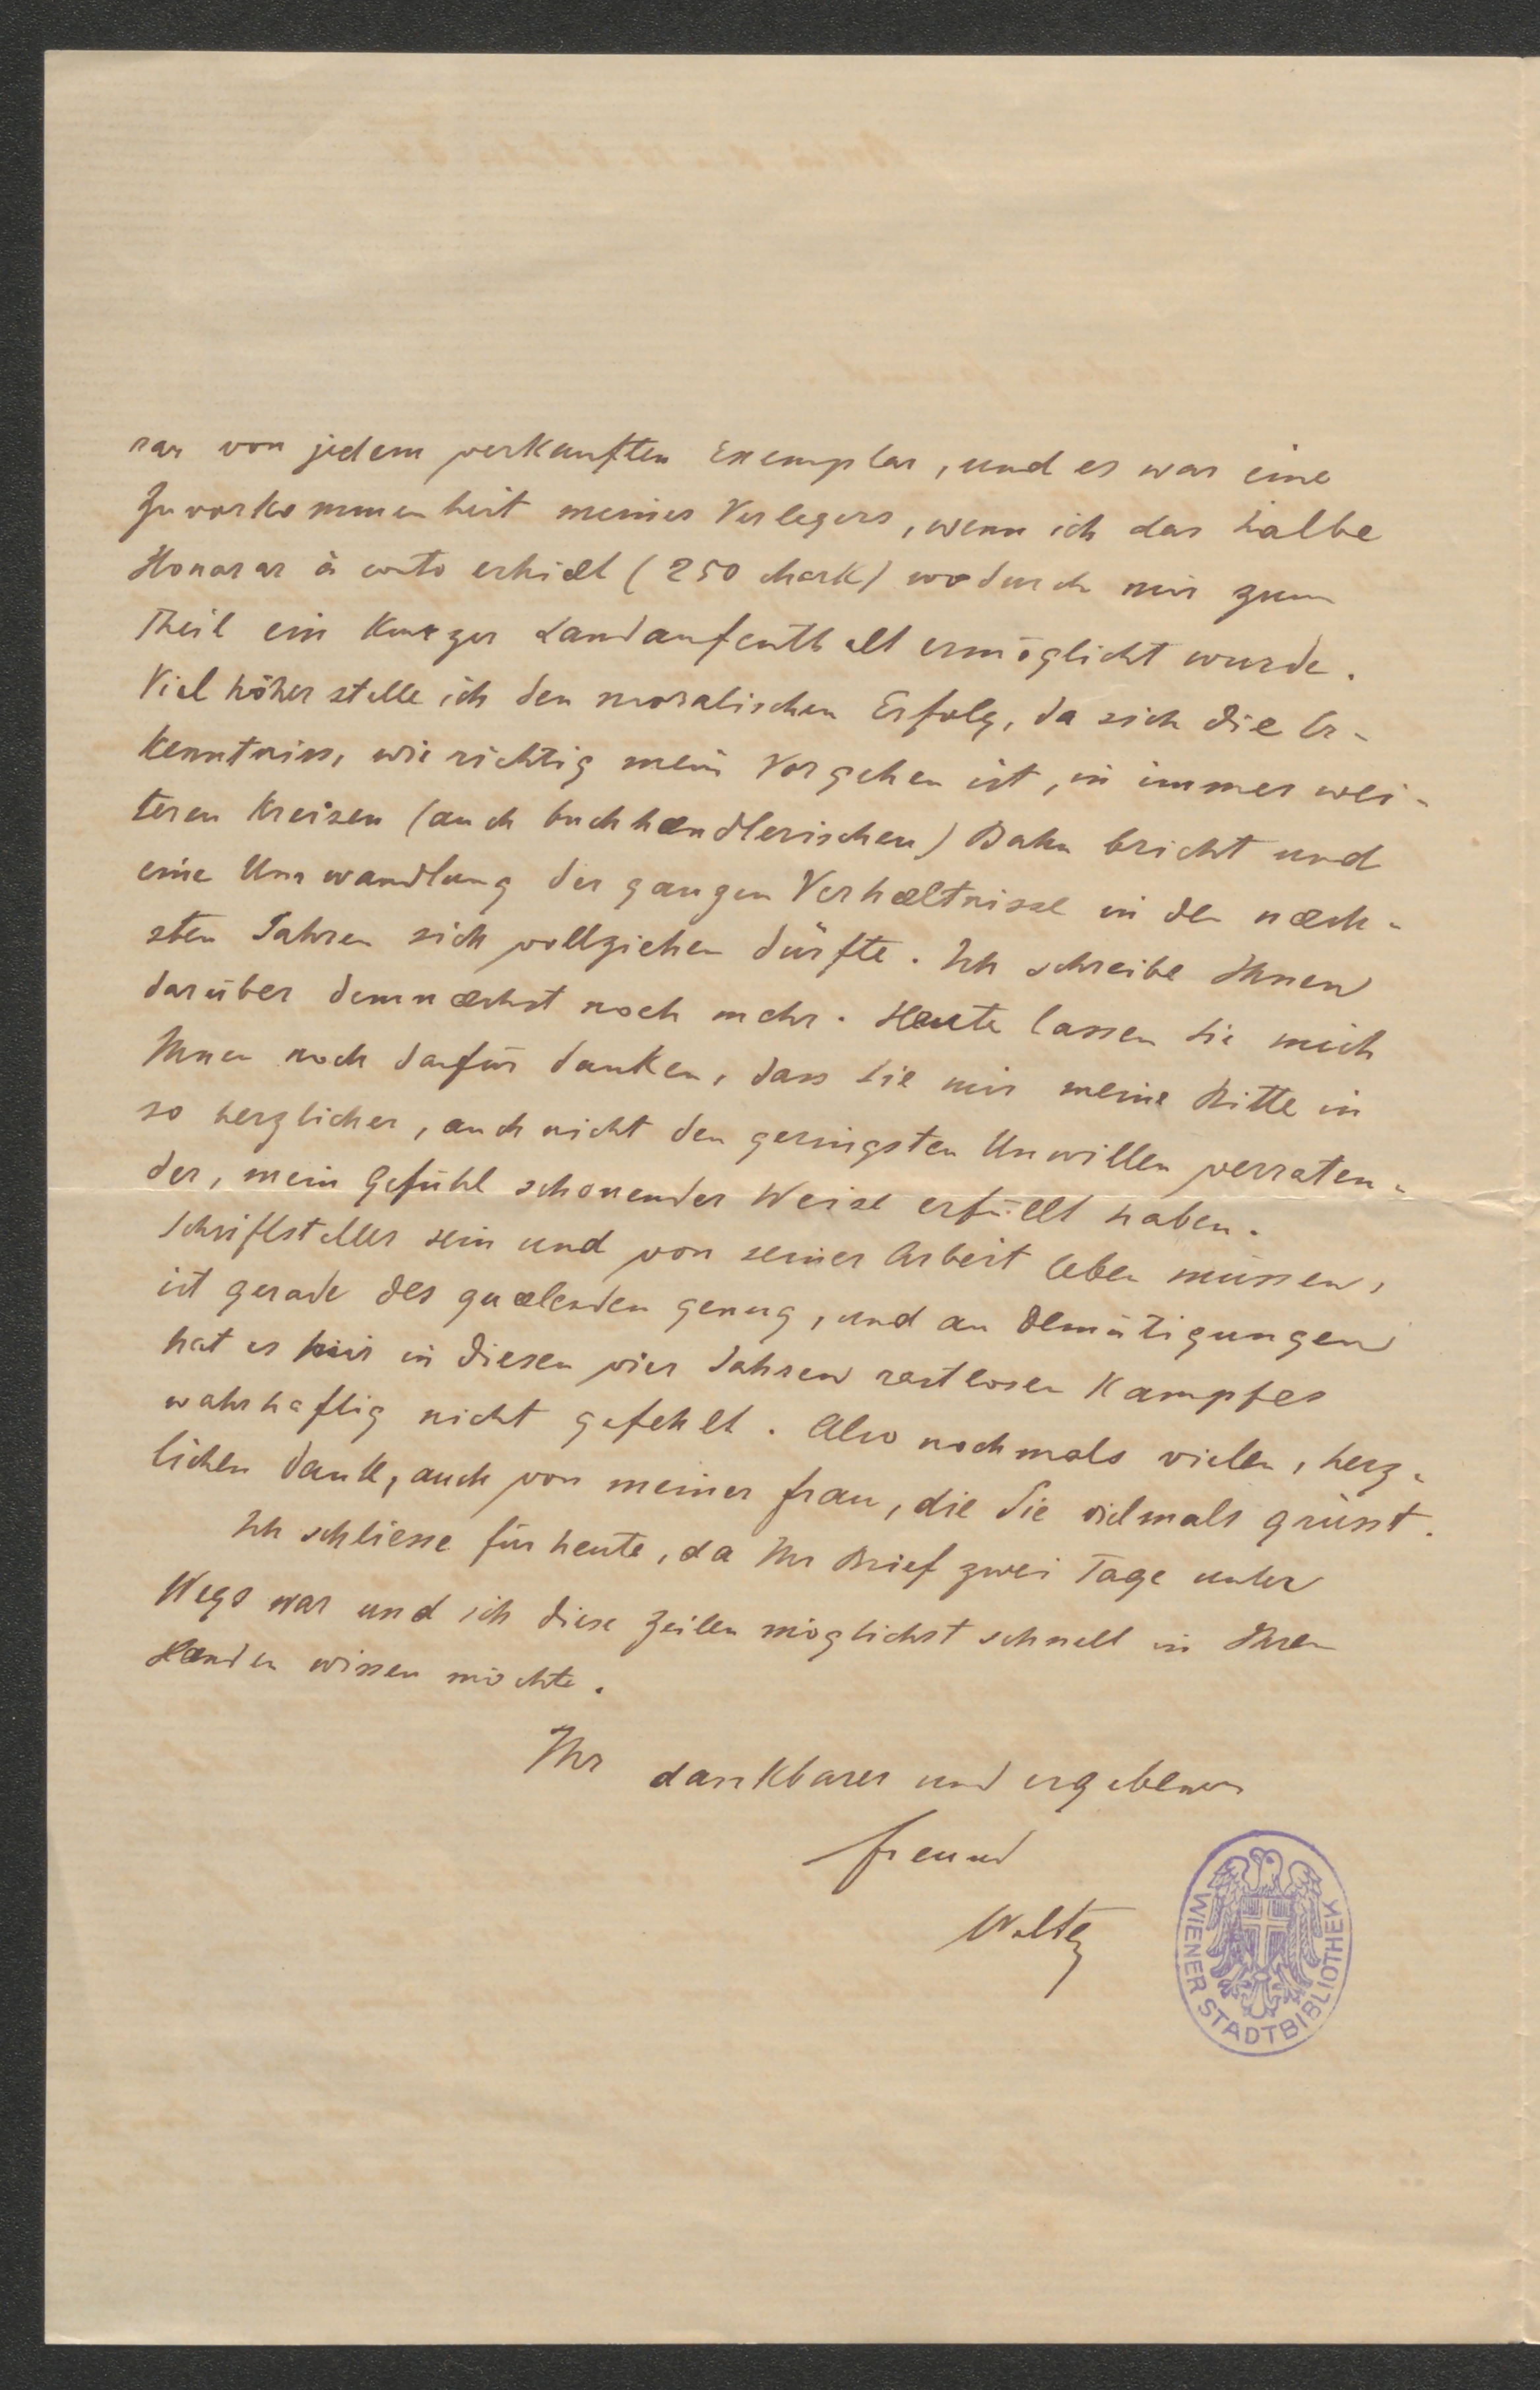 rar von jedem verkauften Exemplar, und es war eine
Zuvorkommenheit meines Verlegers, wenn ich das halbe
Honorar à conto erhielt (250 Mark) wodurch mir zum
Theil ein kurzer Landaufenthalt ermöglicht wurde.
Viel höher stelle ich den moralischen Erfolg, da sich die Er-
kenntniss, wie richtig mein Vorgehen ist, in immer wei-
teren Kreisen (auch buchhændlerischen) Bahn bricht und
eine Umwandlung der ganzen Verhæltnisse in den næch-
sten Jahren sich vollziehen dürfte. Ich schreibe Ihnen
darüber demnæchst noch mehr. Heute lassen Sie mich
Ihnen noch dafür danken, dass Sie mir meine Bitte in
so herzlicher, auch nicht den geringsten Unwillen verraten-
der, mein Gefühl schonender Weise erfüllt haben.
Schriftsteller sein und von seiner Arbeit leben müssen,
ist gerade des quælenden genug, und an Demütigungen
hat es mir in diesen vier Jahren rastlosen Kampfes
wahrhaftig nicht gefehlt. Also nochmals vielen, herz-
lichen Dank, auch von meiner Frau, die Sie vielmals grüsst.
Ich schliesse für heute, da Ihr Brief zwei Tage unter
Wegs war und ich diese Zeilen möglichst schnell in Ihren
Hænden wissen möchte.
Ihr dankbarer und ergebener
Freund
WIENER STADTBIBLIOTHEK